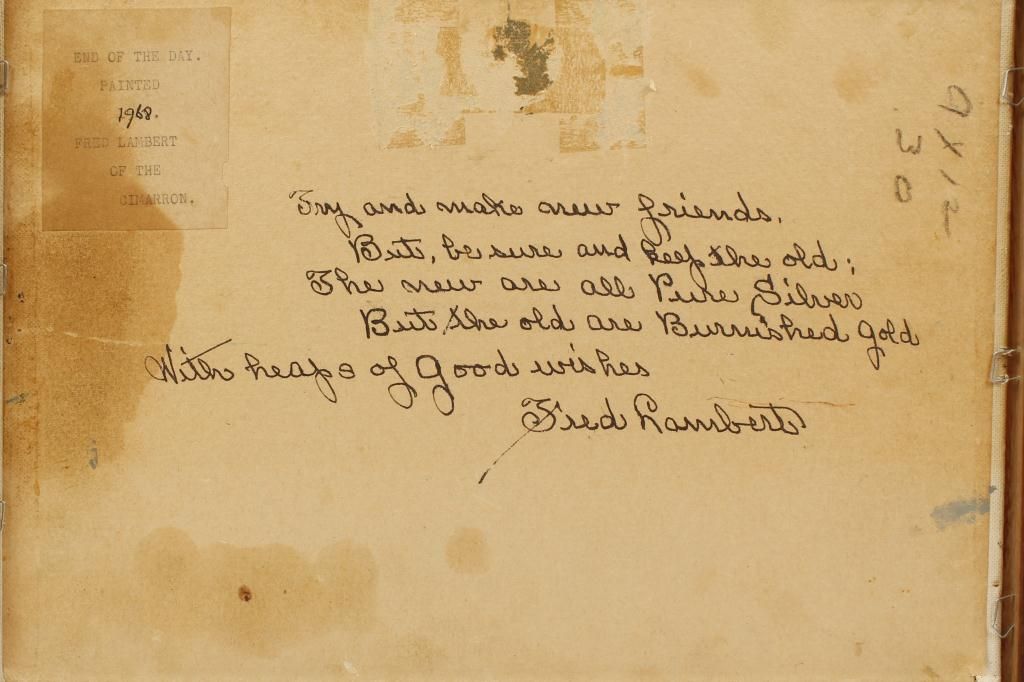 END OF THE DAY.
PAINTED
1968.
FRED LAMBERT
OF THE
CIMARRON.
Try and make new friends.
But, be sure and keep the old;
The new are all Pure Silver
But the old are Burnished gold
With heaps of Good wishes
Fred Lambert
9x12
30